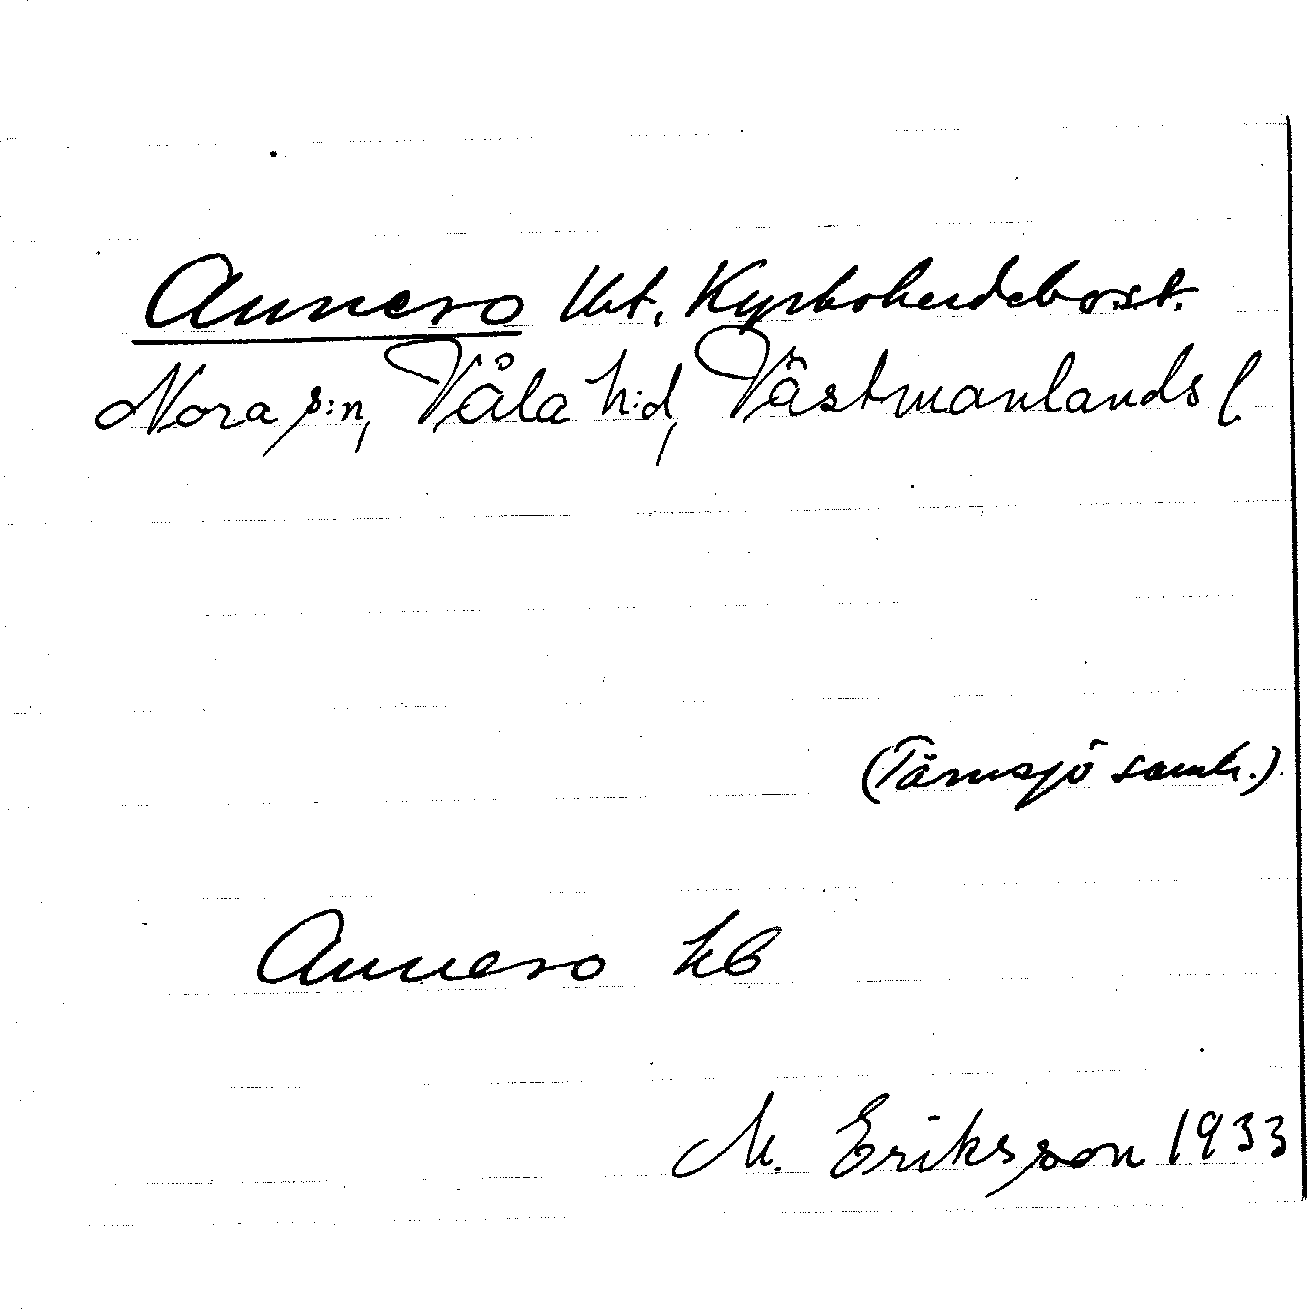 Annero lht. Kyrkoherdebost.
Nora s:n, Våla h:d, Västmanlands l.
(Tärnsjö samh.)
Annero hb
M. Eriksson 1933